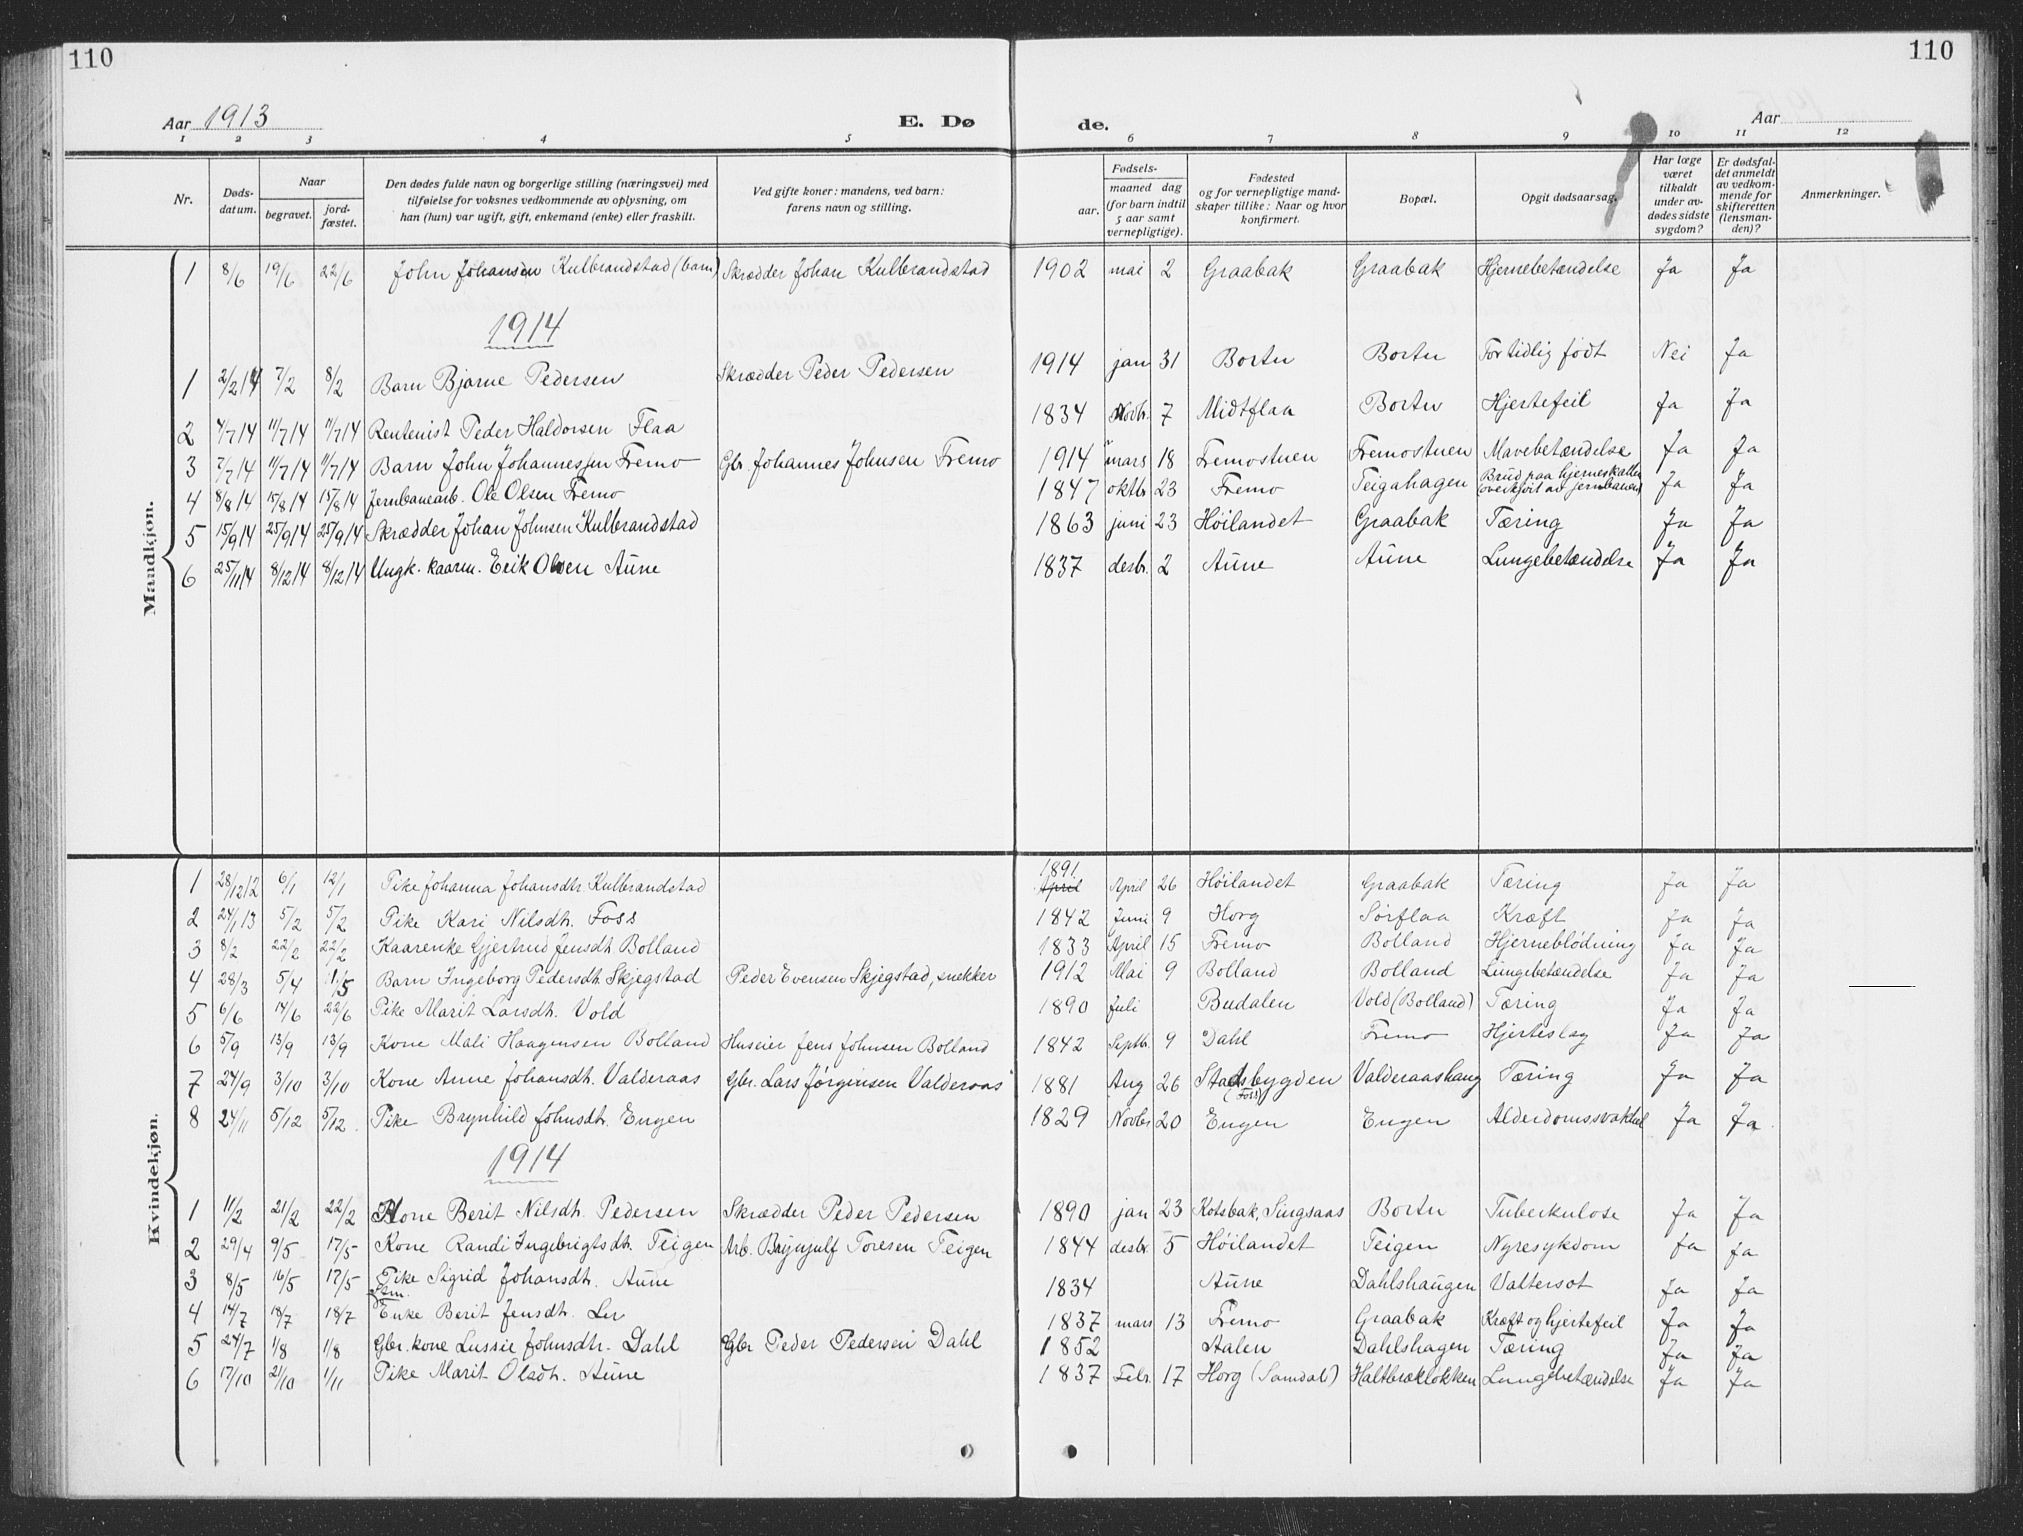 110
110
Aar 1913
E. Dø
de.
Aar
1 2 3 4 5 6 7 8 9 10 11 12
Nr.
Døds-
datum.
Naar
begravet.
jord-
fæstet.
Den dødes fulde navn og borgerlige stilling (næringsvei) med
tilføielse for voksnes vedkommende av oplysning, om
han (hun) var ugift, gift, enkemand (enke) eller fraskilt.
Ved gifte koner: mandens, ved barn:
farens navn og stilling.
Fødsels-
aar.
maaned dag
(for barn indtil
5 aar samt
vernepligtige).
Fødested
og for vernepligtige mand-
skaper tillike: Naar og hvor
konfirmert.
Bopæl.
Opgit dødsaarsag.
Har læge
været
tilkaldt
under av-
dødes sidste
sygdom?
Er dødsfal-
det anmeldt
av vedkom-
mende for
skifteretten
(lensman-
den)?
Anmerkninger.
Mandkjøn.
1 8/6 19/6 22/6 John Johansen Kulbrandstad (barn) Skrædder Johan Kulbrandstad 1902 mai 2 Graabak Graabak Hjernebetændelse Ja Ja
1914
1 2/2 14 7/2 8/2 Barn Bjarne Pedersen Skrædder Peder Pedersen 1914 jan 31 Bortn Bortn For tidlig født Nei Ja
2 4/7 14 11/7 14 11/7 14 Rentenist Peder Haldorsen Flaa 1834 Novbr. 7 Midtflaa Bortn Hjertefeil Ja Ja
3 7/7 14 11/7 14 11/7 14 Barn John Johannessen Fremo Gbr. Johannes Johnsen Fremo 1914 mars 18 Fremostuen Fremostuen Mavebetændelse Ja Ja
4 8/8 14 15/8 14 15/8 14 Jernbanearb. Ole Olsen Fremo 1847 oktbr 23 Fremo Teigahagen Brud paa hjerneskallen (overkjørt av jernbanen) Ja Ja
5 15/9 14 25/9 14 25/9 14 Skrædder Johan Johnsen Kulbrandstad 1863 juni 23 Høilandet Graabak Tæring Ja Ja
6 25/11 14 8/12 14 8/12 14 Ungk. kaarm. Erik Olsen Aune 1837 desbr. 2 Aune Aune Lungebetændelse Ja Ja
Kvindekjøn.
1 28/12 12 6/1 12/1 Pike Johanna Johansdtr. Kulbrandstad 1891 April April 26 Høilandet Graabak Tæring Ja Ja
2 24/1 13 5/2 5/2 Pike Kari Nilsdtr. Foss 1842 Juni 9 Horg Sørflaa Kræft Ja Ja
3 8/2 22/2 22/2 Kaarenke Gjertrud Jensdtr Bolland 1833 April 15 Fremo Bolland Hjerneblødning Ja Ja
4 28/3 5/4 1/5 Barn Ingeborg Pedersdtr Skjegstad Peder Evensen Skjegstad, snekker 1912 Mai 9 Bolland Bolland Lungebetændelse Ja Ja
5 6/6 14/6 22/6 Pike Marit Larsdtr. Vold 1890 Juli Budalen Vold (Bolland) Tæring Ja Ja
6 5/9 13/9 13/9 Kone Mali Haagensen Bolland Huseier Jens Johnsen Bolland 1842 Septbr. 9 Dahl Fremo Hjerteslag Ja Ja
7 24/9 3/10 3/10 Kone Anne Johansdtr. Valderaas Gbr. Lars Jørginsen Valderaas 1881 Aug 26 Stadsbygden (Foss) Valderaashaug Tæring Ja Ja
8 24/11 5/12 5/12. Pike Brynhild Johnsdtr. Engen 1829 Novbr 20 Engen Engen Alderdomssvakhet Ja Ja
1914
1 11/2 21/2 22/2 Kone Berit Nilsdtr. Pedersen Skrædder Peder Pedersen 1890 jan 23 Kotsbak, Singsaas Bortn Tuberkulose Ja Ja
2 29/4 9/5 17/5 Kone Randi Ingebrigtsdtr. Teigen Arb. Brynjulf Toresen Teigen 1844 desbr. 5 Høilandet Teigen Nyresykdom Ja Ja
3 8/5 16/5 17/5 Pike Sigrid Johansdtr. Aune 1834 Aune Dahlshaugen Valtersot Ja Ja
4 14/7 18/7 18/7 Enke Berit Jensdtr. Ler 1837 mars 13 Fremo Graabak Kræft og hjertefeil Ja Ja
5 24/7 1/8 1/8 Gbr. kone Lussie Johnsdtr. Dahl Gbr Peder Pedersen Dahl 1852 Aalen Dahlshagen Tæring Ja Ja
6 17/10 21/10 1/11 Pike Marit Olsdtr. Aune 1837 Febr. 17 Horg (Samdal) Haltbrækløkken Lungebetændelse Ja Ja